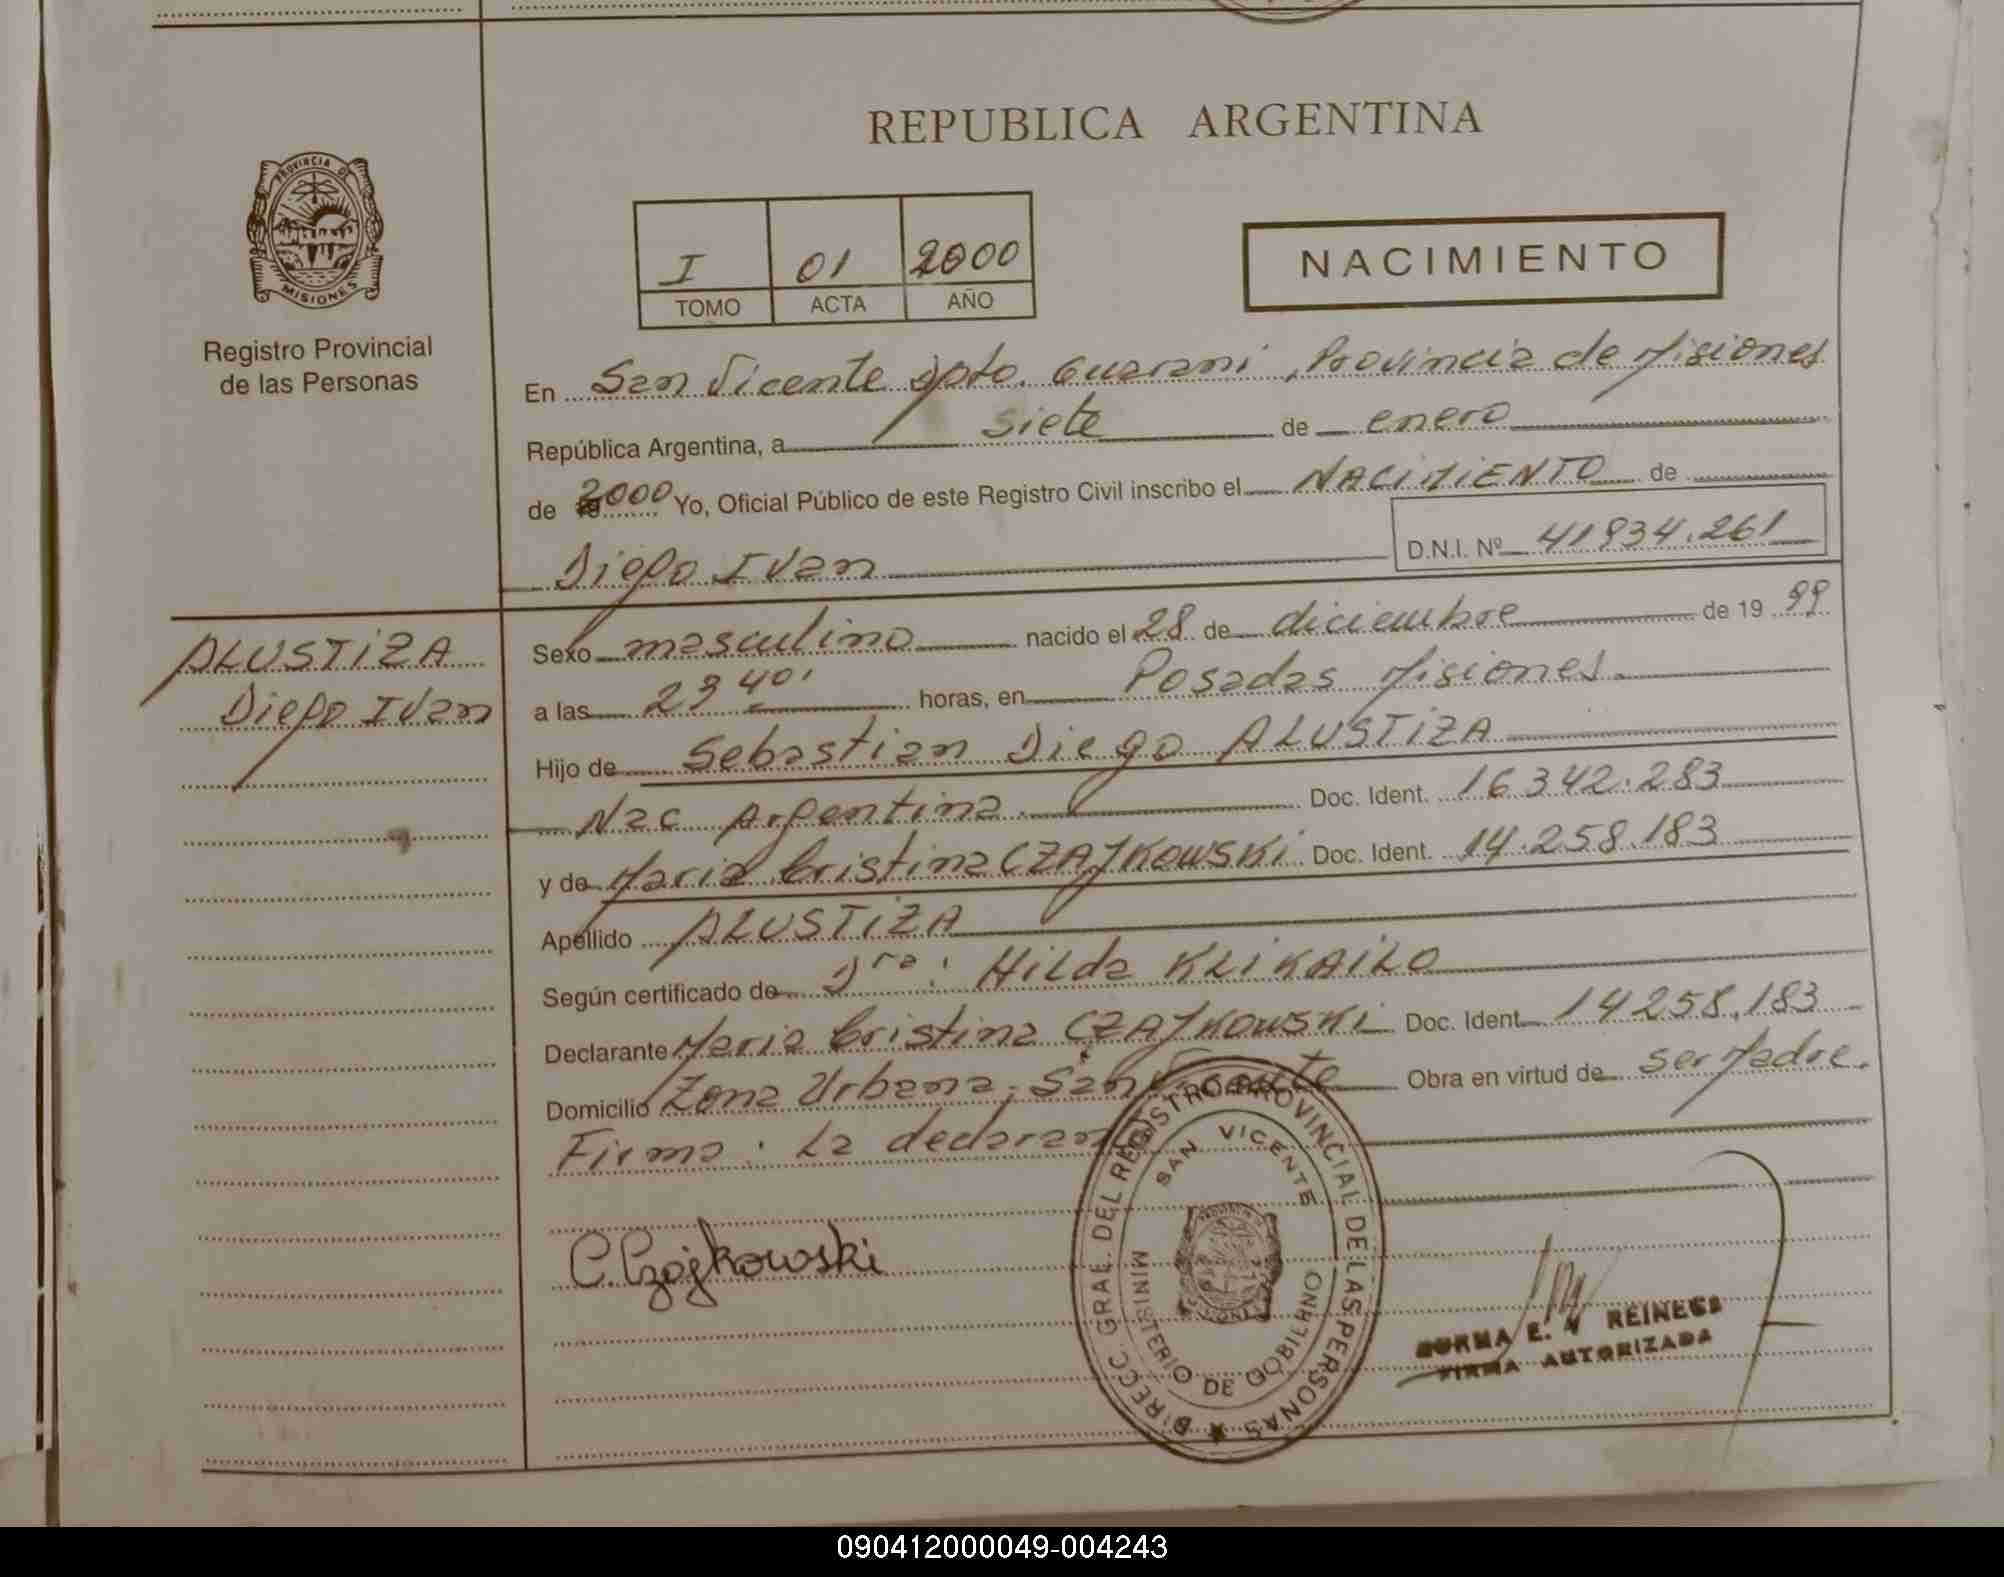 REPUBLICA ARGENTINA
PROVINCIA DE
MISIONES
Registro Provincial
de las Personas
I 01 2000
TOMO ACTA AÑO
NACIMIENTO
En San Vicente Dpto. Guarani, Provincia de Misiones
República Argentina, a siete de enero
de 2000 Yo, Oficial Público de este Registro Civil inscribo el NACIMIENTO de
Diego Ivan D.N.I. Nº 41934.261
ALUSTIZA
Diego Ivan
Sexo masculino nacido el 28 de diciembre de 19 99
a las 23 40' horas, en Posadas Misiones.
Hijo de Sebastian Diego ALUSTIZA
Nac Argentina. Doc. Ident. 16342.283
y de Maria Cristina CZAJKOWSKI Doc. Ident. 14.258.183
Apellido ALUSTIZA
Según certificado de Dra: Hilda KLIKAILO
Declarante Maria Cristina CZAJKOWSKI Doc. Ident. 14258.183
Domicilio Zona Urbana, San Vicente Obra en virtud de ser Madre.
Firma: La declarante
C. Czajkowski
DIRECC. GRAL. DEL REGISTRO PROVINCIAL DE LAS PERSONAS
SAN VICENTE
MINISTERIO DE GOBIERNO
NORMA E. REINECS
FIRMA AUTORIZADA
090412000049-004243